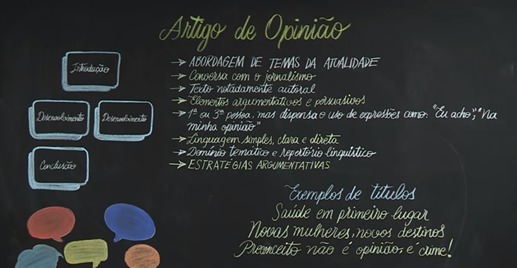 Artigo de Opinião
Introdução
Desenvolvimento
Desenvolvimento
Conclusão
→ ABORDAGEM DE TEMAS DA ATUALIDADE
→ Conversa com o jornalismo
→ Texto notadamente autoral
→ Elementos argumentativos e persuasivos
→ 1ª ou 3ª pessoa, mas dispensa o uso de expressões como: "Eu acho", "Na
minha opinião"
→ Linguagem simples, clara e direta
→ Domínio temático e repertório linguístico
→ ESTRATÉGIAS ARGUMENTATIVAS
Exemplos de títulos
Saúde em primeiro lugar
Novas mulheres, novos destinos
Preconceito não é opinião, é crime!